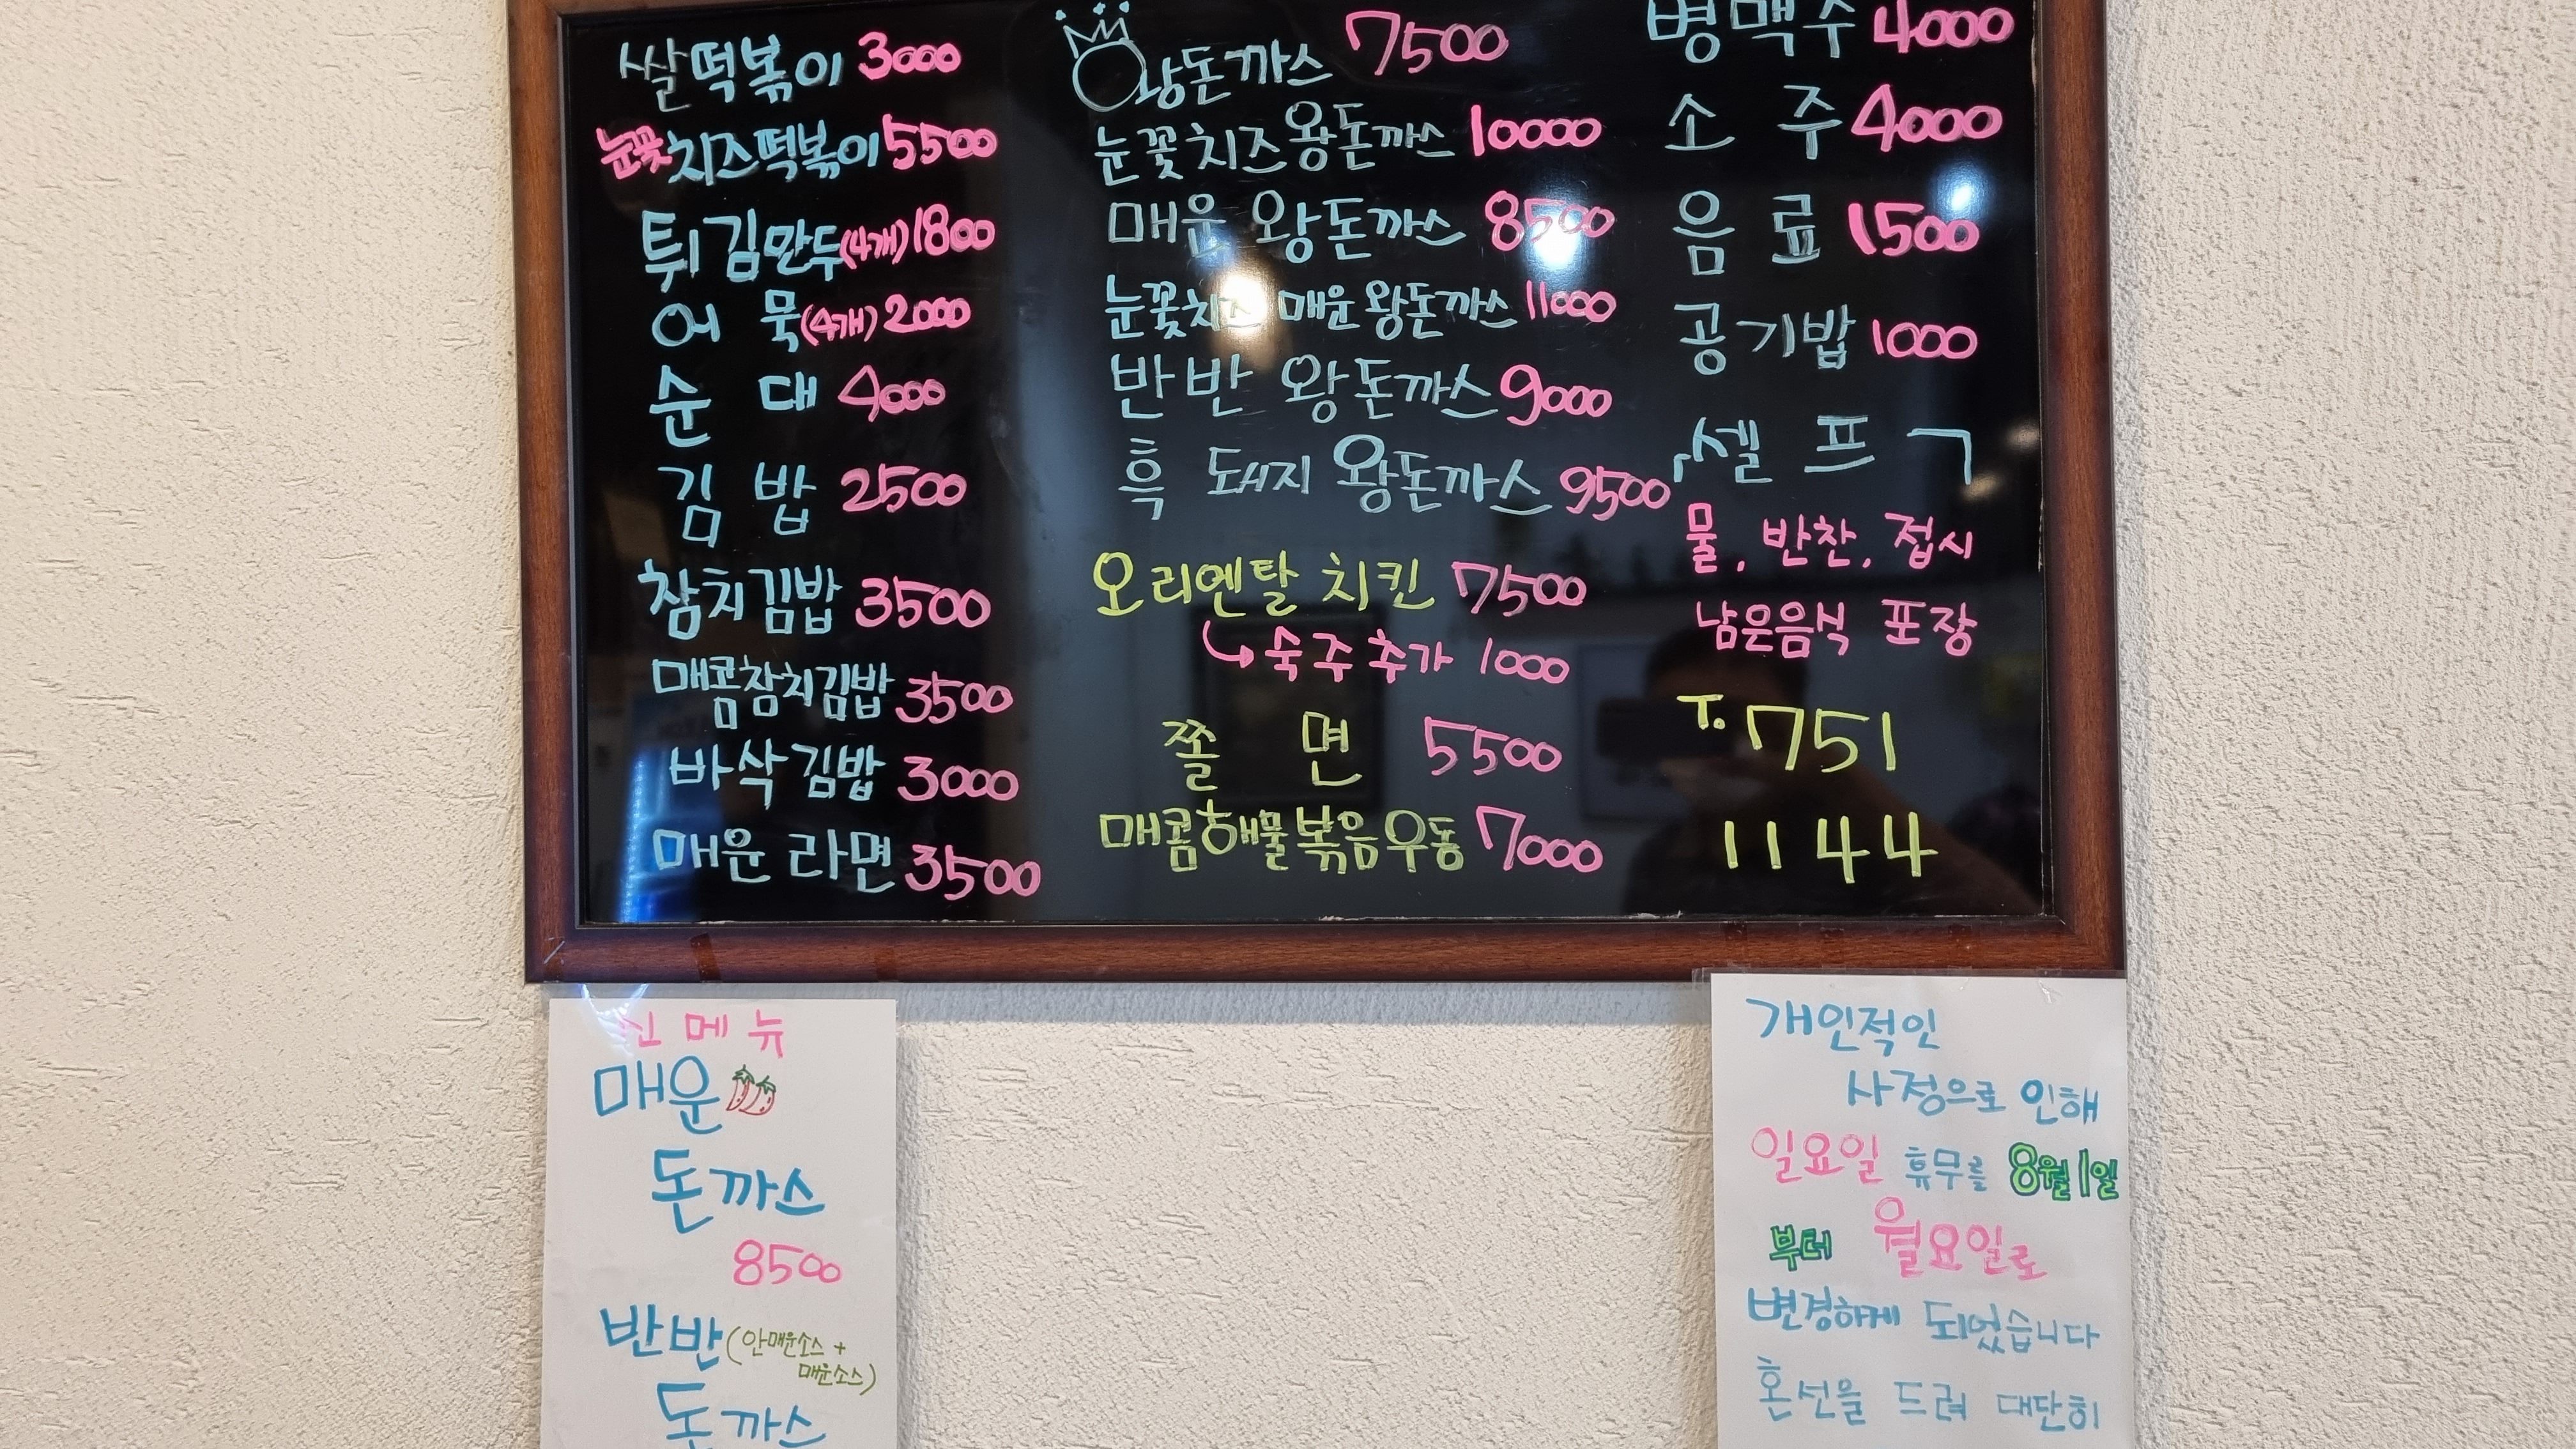 쌀떡볶이 3000
눈꽃치즈떡볶이 5500
튀김만두(4개) 1800
어묵(4개) 2000
순대 4000
김밥 2500
참치김밥 3500
매콤참치김밥 3500
바삭김밥 3000
매운라면 3500
왕돈까스 7500
눈꽃치즈왕돈까스 10000
매운 왕돈까스 8500
눈꽃치즈 매운왕돈까스 11000
반반 왕돈까스 9000
흑돼지 왕돈까스 9500
오리엔탈 치킨 7500
↳숙주추가 1000
쫄면 5500
매콤해물볶음우동 7000
병맥주 4000
소주 4000
음료 1500
공기밥 1000
「셀프ㄱ
물, 반찬, 접시
남은음식 포장
T. 751
1144
신메뉴
매운
돈까스
8500
반반(안매운소스+
매운소스)
돈까스
개인적인
사정으로 인해
일요일 휴무를 8월1일
부터 월요일로
변경하게 되었습니다
혼선을 드려 대단히